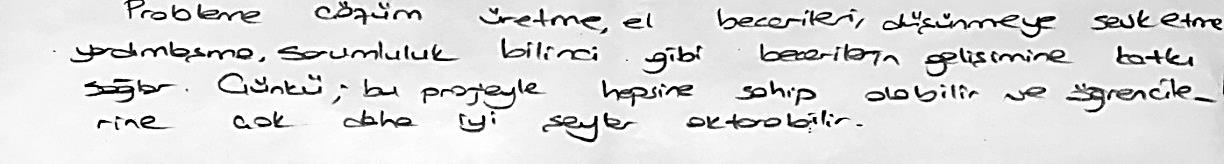 Probleme çözüm üretme, el becerileri, düşünmeye sevk etme
yardımlaşma, sorumluluk bilinci gibi becerilerin gelişimine katkı
sağlar. Çünkü; bu projeyle hepsine sahip olabilir ve öğrencile-
rine çok daha iyi şeyler aktarabilir.